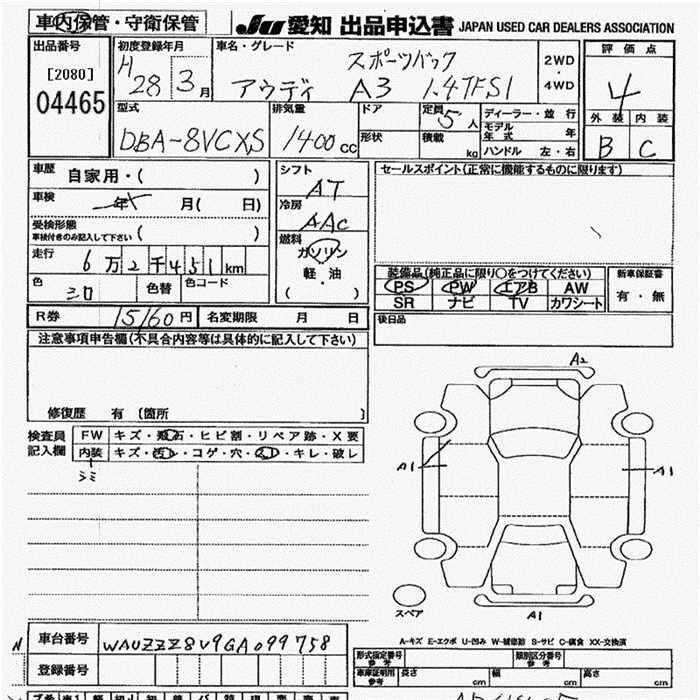 車内保管・守衛保管 JU 愛知 出品申込書 JAPAN USED CAR DEALERS ASSOCIATION
出品番号 初度登録年月 車名・グレード 評価点
[2080] H 28 3月 スポーツバック 2WD
04465 アウディ A3 1.4TFSI ・4WD 4
型式 排気量 ドア 定員 5人 ディーラー・並行 外装 内装
DBA-8VCXS 1400cc 形状 積載 kg モデル年式 年 B C
ハンドル 左・右
車歴 自家用・( ) シフト AT セールスポイント(正常に機能するものに限ります)
車検 年 月( 日) 冷房 AAC
受検形態 車検付きのみ記入して下さい ( ) 燃料
走行 6万2千451km ガソリン
軽・油
( )
装備品(純正品に限り○をつけてください) 新車保証書
PS PW エアB AW 有・無
SR ナビ TV カワシート
色 シロ 色替 色コード
R券 15160円 名変期限 月 日 後日品
注意事項申告欄(不具合内容等は具体的に記入して下さい)
修復歴 有 [箇所 ]
検査員 FW キズ・飛石・ヒビ割・リペア跡・X要
記入欄 内装 キズ・汚レ・コゲ・穴・スレ・キレ・破レ
シミ
A2
A1 A1
スペア A1
A-キズ E-エクボ U-凹み W-補修跡 S-サビ C-腐食 XX-交換済
N 車台番号 WAUZZZ8V9GA099758
登録番号
形式指定番号 参考 類別区分番号 参考
車庫証明用 参考 長さ cm 幅 cm 高さ cm